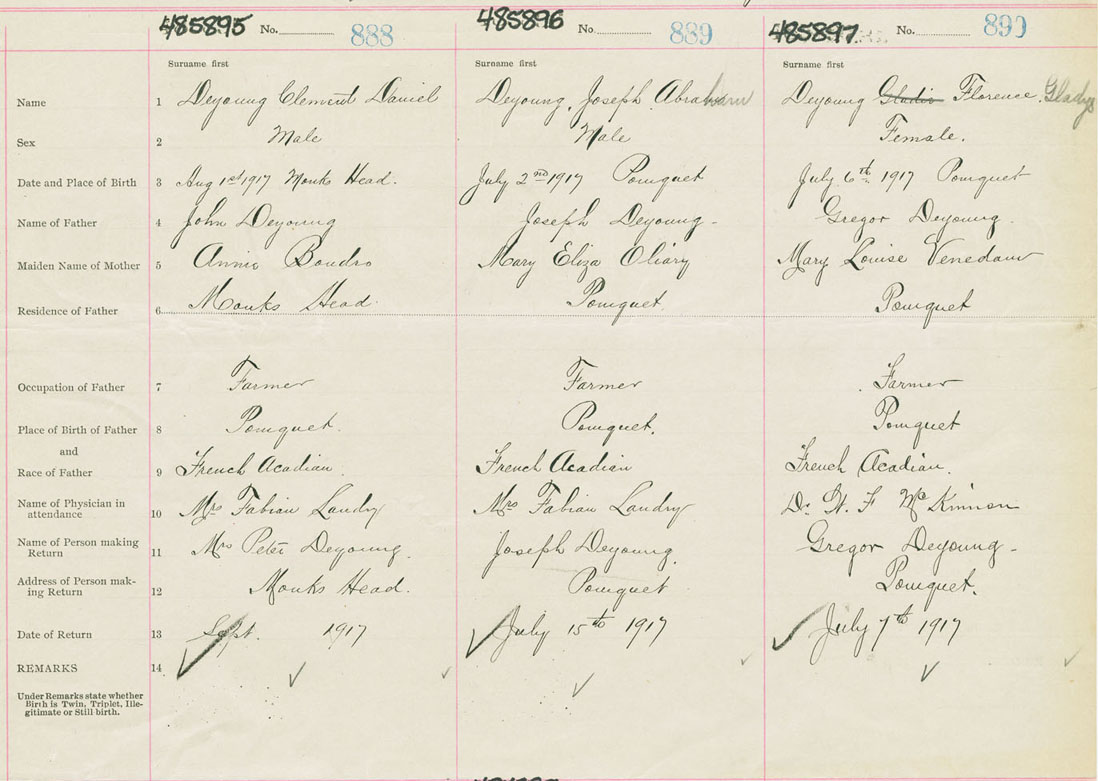 485895 No. 888 485896 No. 889 485897 No. 890
Surname first Surname first Surname first
Name 1 Deyoung Clement Daniel Deyoung, Joseph Abraham Deyoung Gladis Florence Gladys
Sex 2 Male Male Female.
Date and Place of Birth 3 Aug 1st 1917 Monks Head. July 2nd 1917 Pomquet July 6th 1917 Pomquet
Name of Father 4 John Deyoung Joseph Deyoung - Gregor Deyoung.
Maiden Name of Mother 5 Annie Boudro Mary Eliza Oliary Mary Louise Venedam
Residence of Father 6 Monks Head. Pomquet. Pomquet
Occupation of Father 7 Farmer Farmer Farmer
Place of Birth of Father 8 Pomquet. Pomquet. Pomquet
and
Race of Father 9 French Acadian. French Acadian French Acadian.
Name of Physician in attendance 10 Mrs Fabian Landry Mrs Fabian Landry Dr W. F McKinnon
Name of Person making Return 11 Mrs Peter Deyoung. Joseph Deyoung. Gregor Deyoung -
Address of Person mak-ing Return 12 Monks Head. Pomquet Pomquet.
Date of Return 13 Sept. 1917 July 15th 1917 July 7th 1917
REMARKS 14
Under Remarks state whether
Birth is Twin, Triplet, Ille-
gitimate or Still birth.